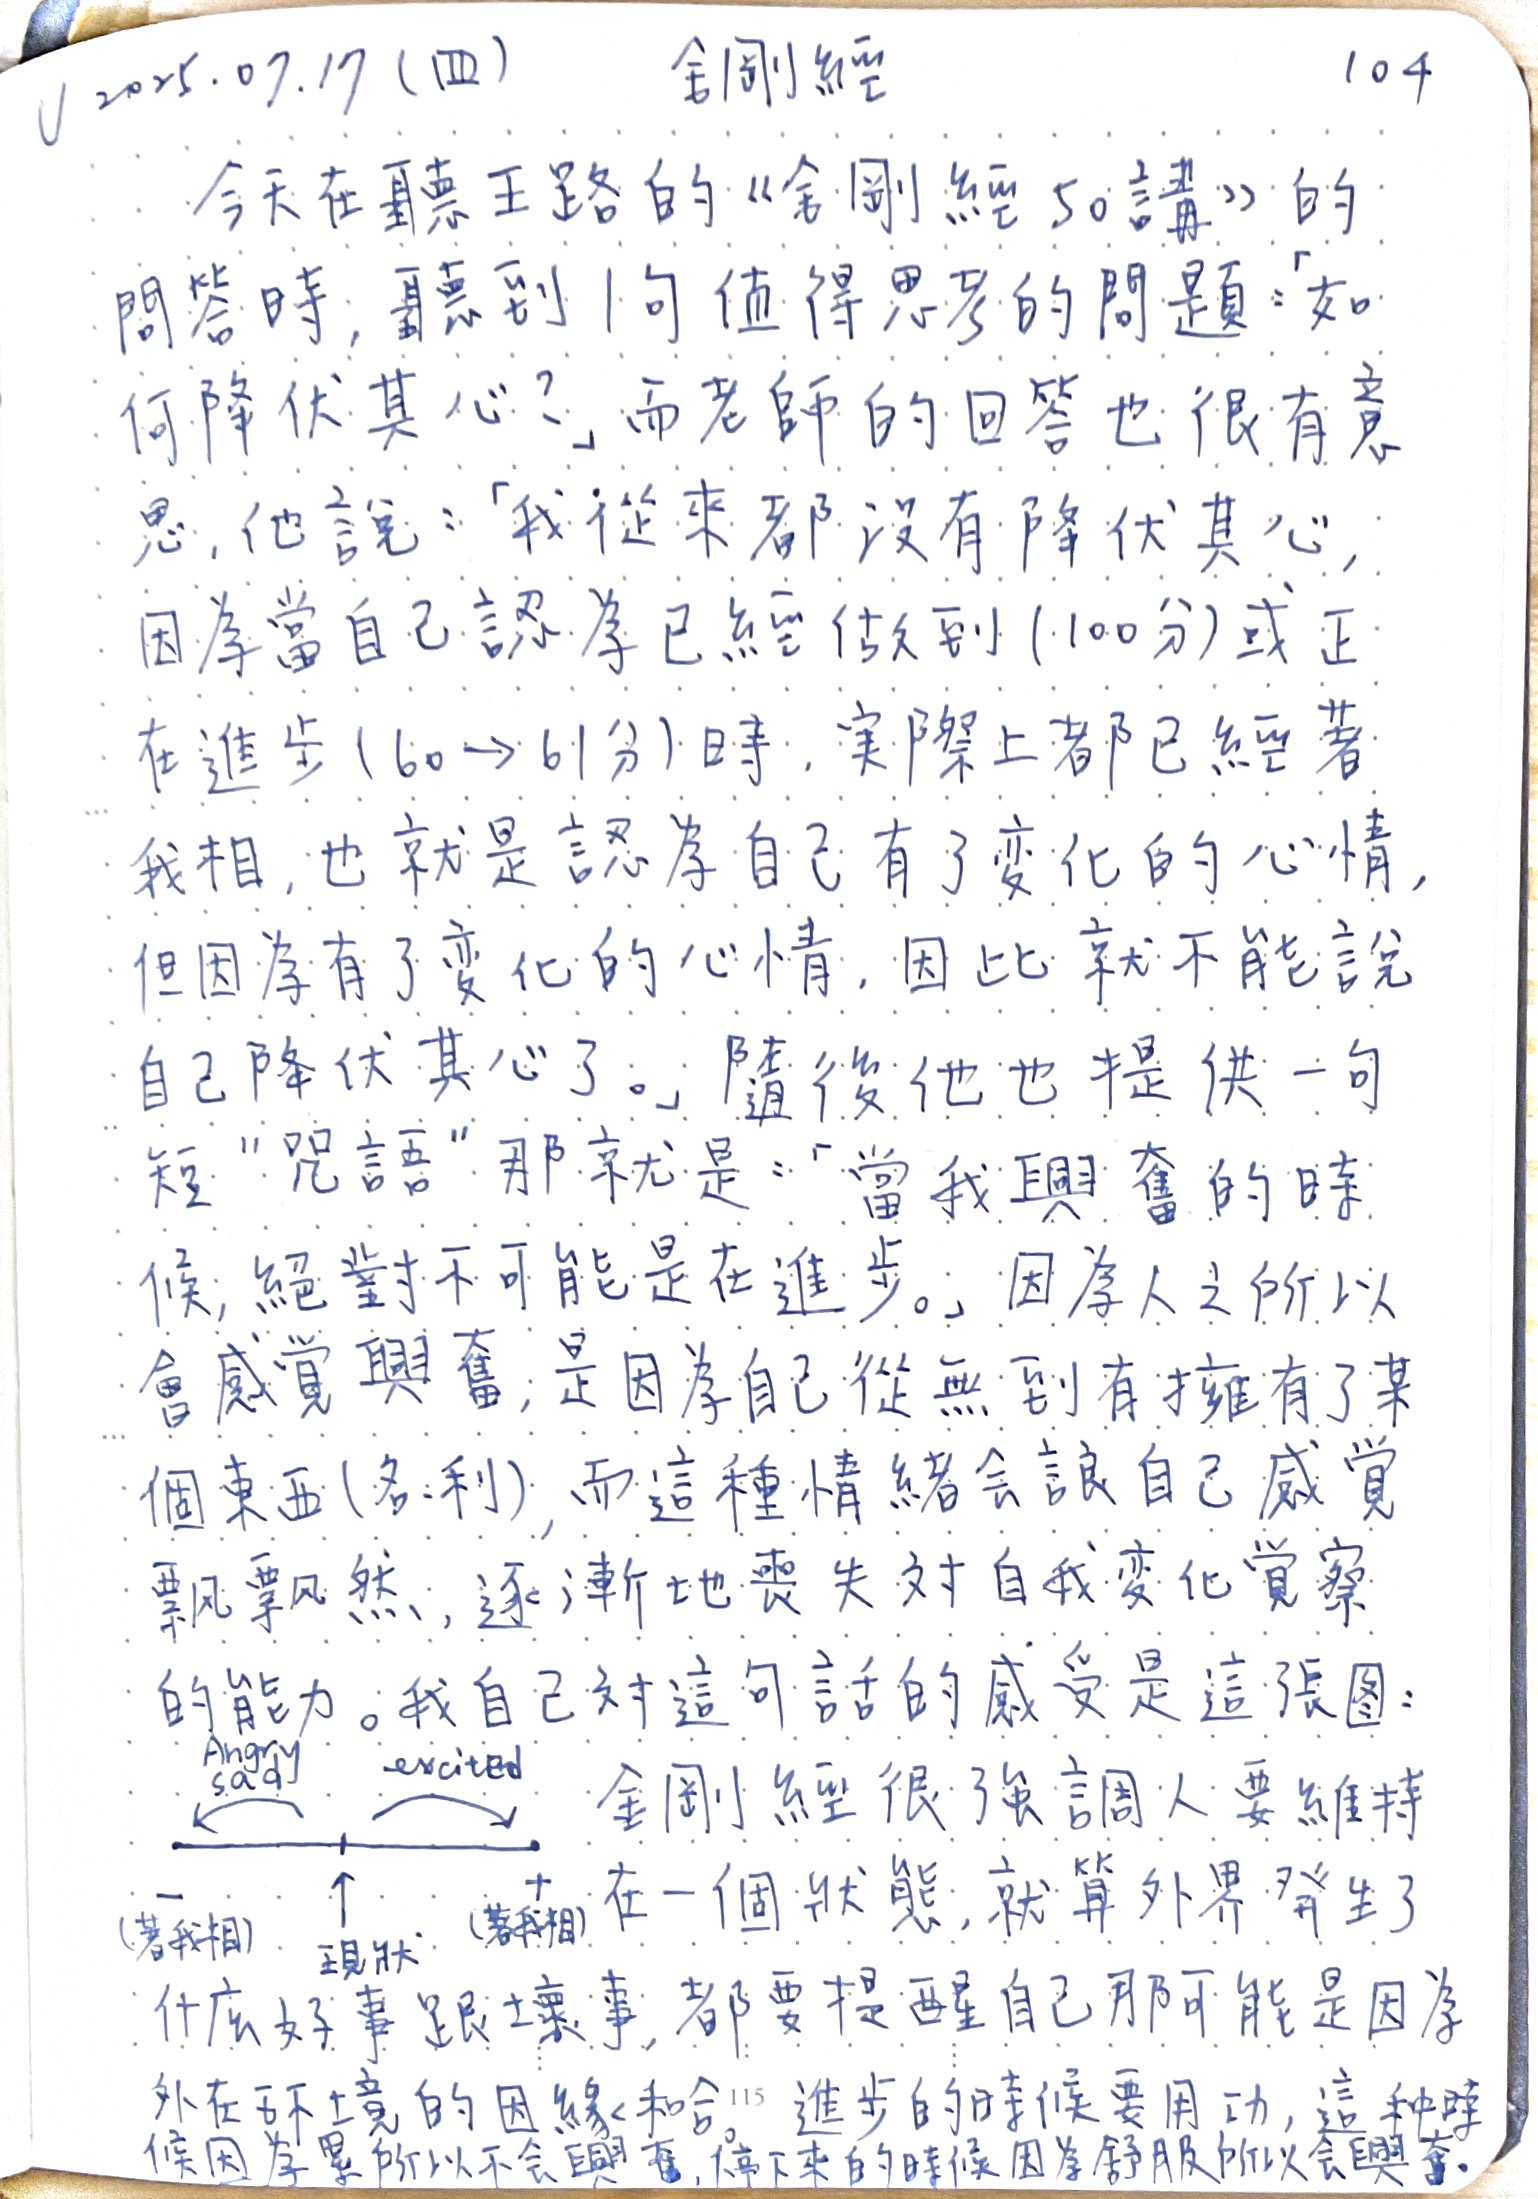 2025.07.17(四) 金剛經 104
今天在聽王路的《金剛經50講》的
問答時,聽到1句值得思考的問題:「如
何降伏其心?」而老師的回答也很有意
思,他說:「我從來都沒有降伏其心,
因為當自己認為已經做到(100分)或正
在進步(60→61分)時,実際上都已經著
我相,也就是認為自己有了変化的心情,
但因為有了変化的心情,因此就不能說
自己降伏其心了。」隨後他也提供一句
短"咒語"那就是:「當我興奮的時
候,絕對不可能是在進步。」因為人之所以
會感覚興奮,是因為自己從無到有擁有了某
個東西(名、利),而這種情緒会讓自己感覚
飄飄然,逐漸地喪失対自我変化覚察
的能力。我自己対這句話的感受是這張图:
Angry
sad
excited
金剛經很強調人要維持
- + 在一個狀態,就算外界発生了
(著我相) ↑ (著我相)
現狀
什庅好事跟壞事,都要提醒自己那可能是因為
外在环境的因緣和合。進步的時候要用功,這种時
115
候因為累所以不会興奮,停下來的時候因為舒服所以会興奮。